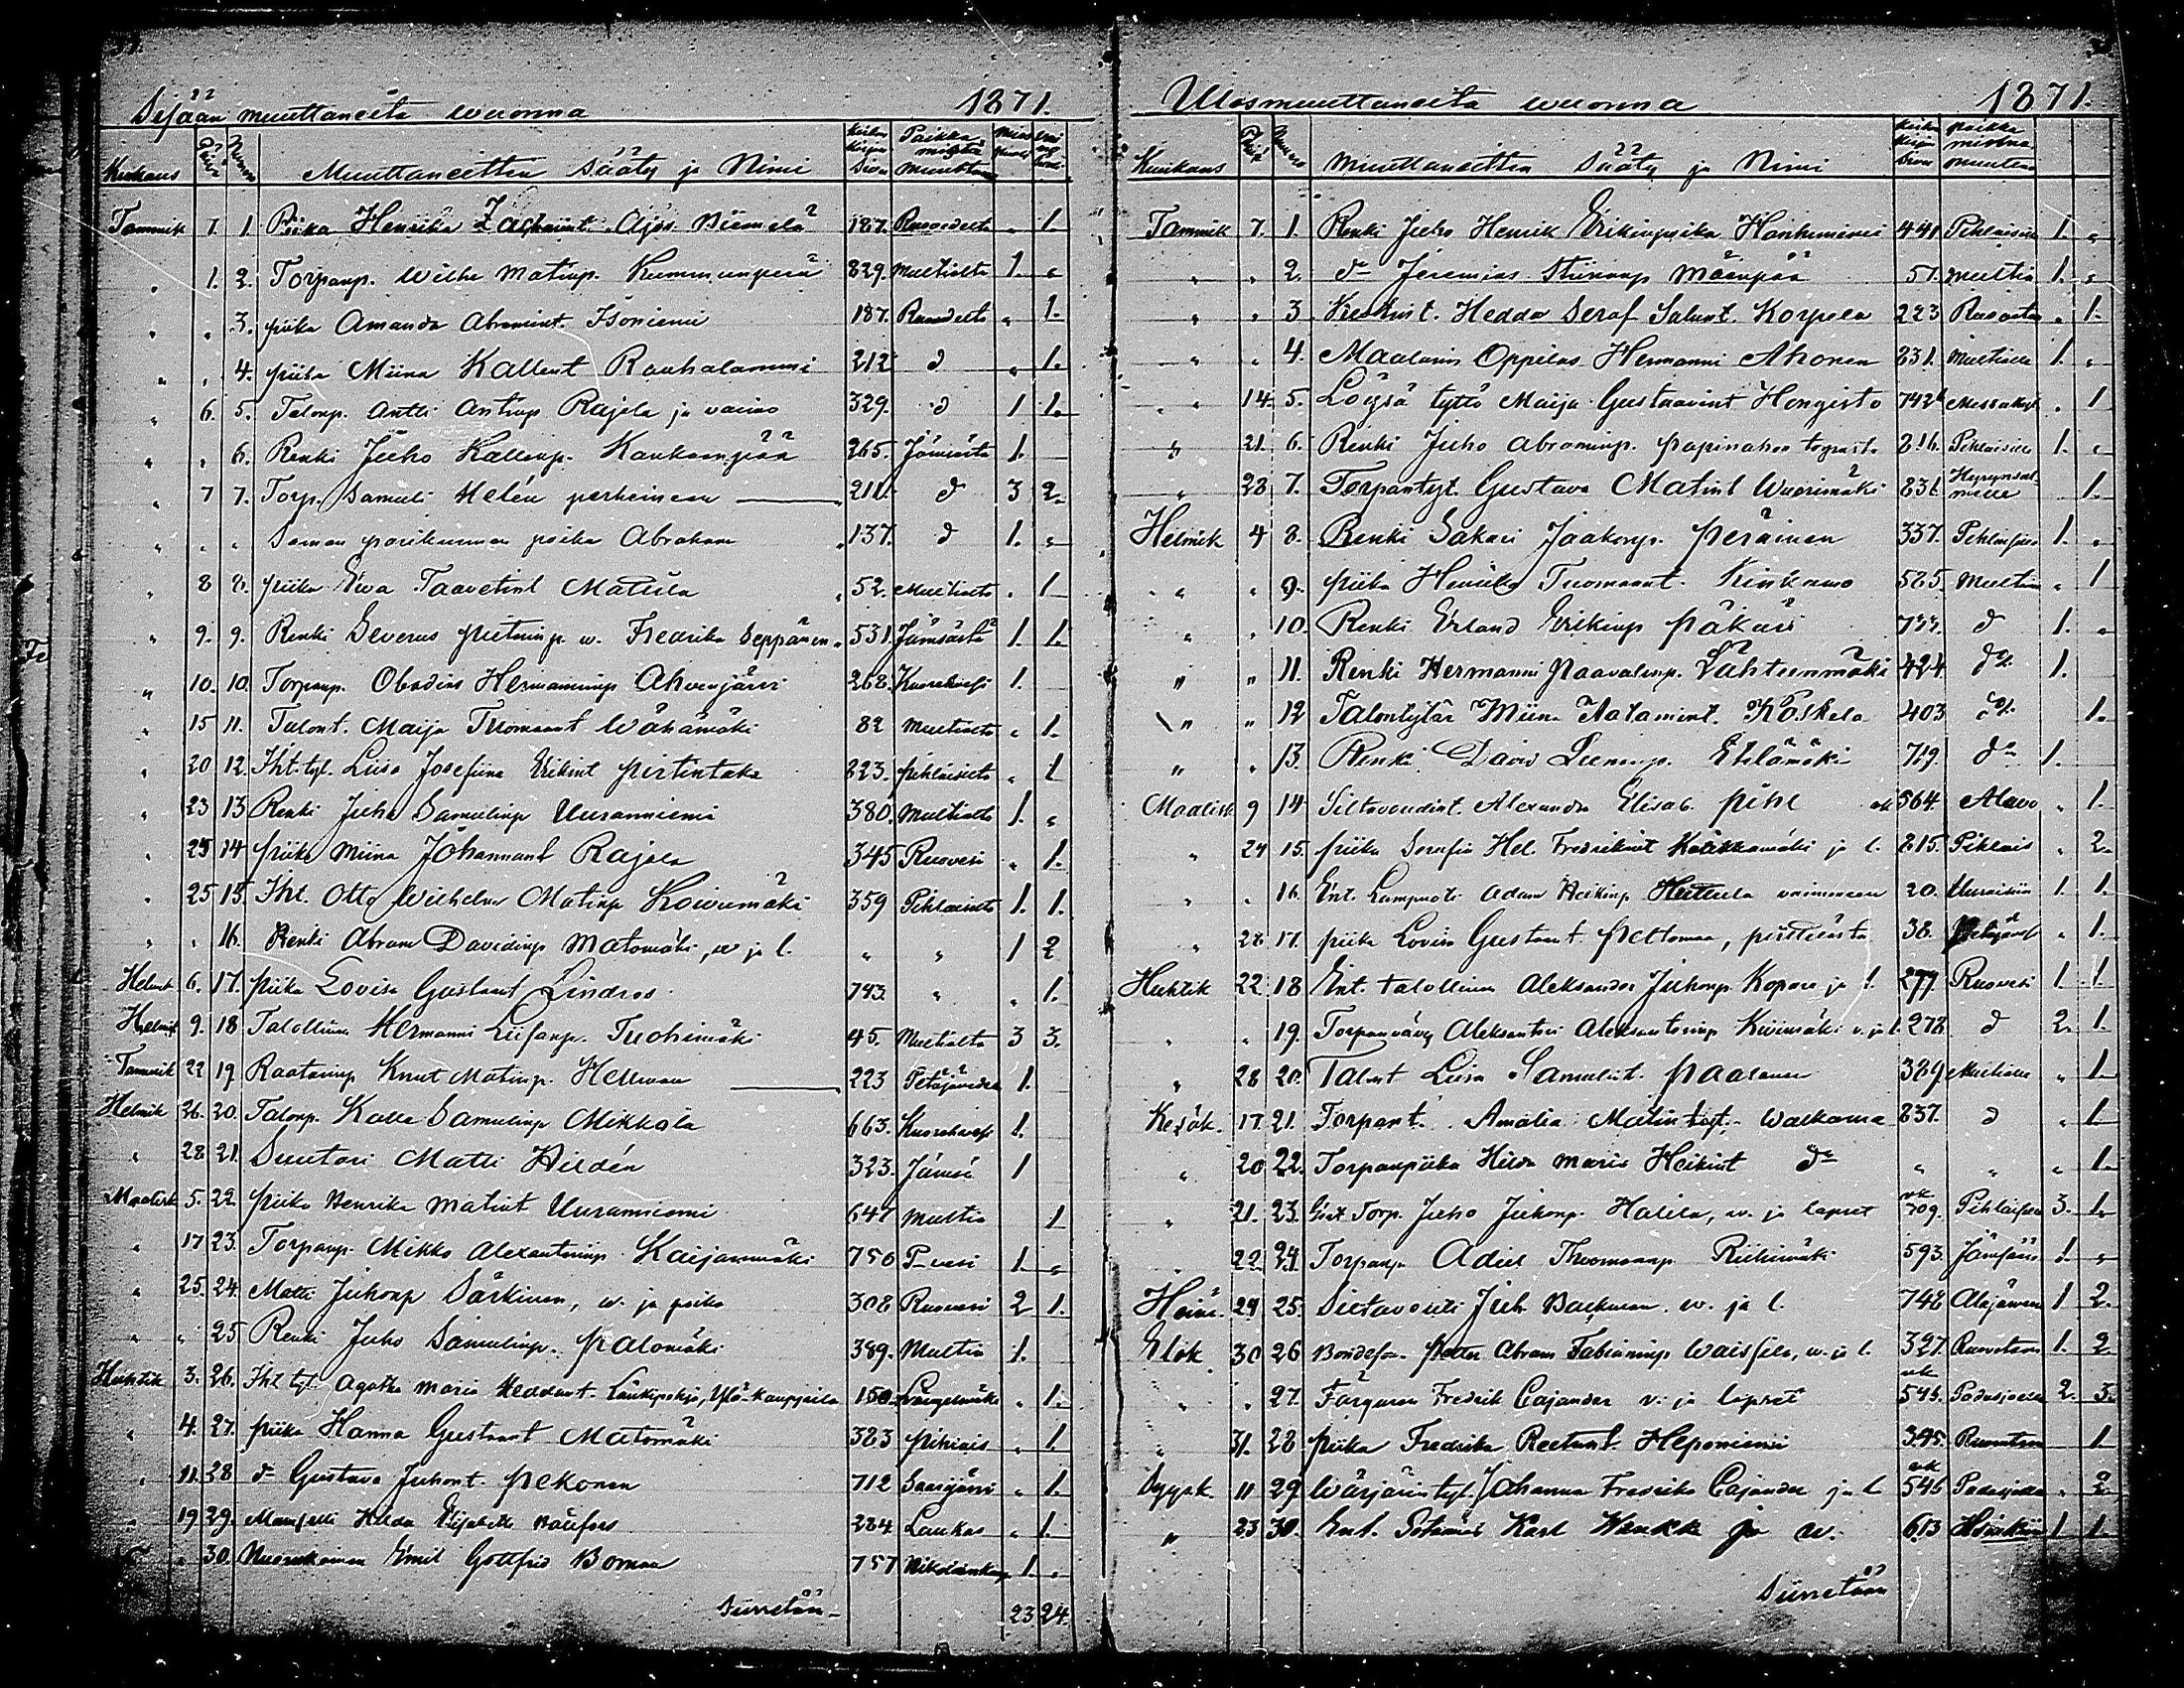 Sisään muuttaneita wuonna 1871.
Kuukaus Päiv Numero Muuttaneitten Sääty ja Nimi Kirkon Kirjan Sivu Paikka mistä muuttan
Tammik 7. 1. Piika Henrika Zachariint. Niemelä 187. Ruovedeltä „ 1.
„ 1. 2. Torpanp. Wilhe Matinp. Kummunperä 829. Multialta 1 „
„ „ 3. piika Amanda Abramint. Isoniemi 187. Ruovedelta „ 1.
„ „ 4. piika Miina Kallent Rauhalammi 212 d „ 1.
„ 6. 5. Talonp. Antti Antinp Rajala ja vaimo 329. d 1 1.
„ „ 6. Renki Juho Kallenp. Kankaanpää 265. Jämsästä 1.
„ 7 7. Torp. Samuli Helén perheineen 211. d 3 2.
„ „ „ Saman pariskunnan poika Abraham 137. d 1. „
„ 8 8. piika Ewa Taavetint Mattila 52. Multialta „ 1
„ 9. 9. Renki Severus pietarinp. w. Fredrika Seppänen 531. Jämsästä 1. 1.
„ 10. 10. Torpanp. Obadias Hermanninp Ahvenjärvi 268. Kuorehvesi 1.
„ 15 11. Talont. Maija Tuomaant Wähämäki 82 Multialta „ 1.
„ 20 12. Iht. tyt. Liisa Josefiina Erikint pirtintaka 223. pihlaisista „ 1
„ 23 13 Renki Juha Samulinp Uuranniemi 380. Multialta 1. „
„ 25 14 piika Miina Johannant Rajala 345 Ruovesi „ 1.
„ 25 15. Iht. Otto Wilhelm Matinp Koivumäki 359 Pihlaisista 1. 1.
„ „ 16. Renki Abram Davidinp Matomäki, w ja l. „ „ 1 2
Helmik 6. 17. piika Lovisa Gustaant Lindros 743. „ „ 1.
Helmik 9. 18 Talollinen Hermanni Tuohimäki 45. Multialta 3 3.
Tammik 22 19 Raatarinp Knut Matinp. Hellman 223 Petäjävedeltä 1.
Helmik 26. 20. Talonp. Kalle Samulinp Mikkola 663. Kuorehvesi 1.
„ 28 21. Suutari Matti Hildén 323. Jämsä 1
Maalisk 5. 22 piika Henrika Matint Uuranniemi 647 Multia 1
„ 17 23. Torpanp. Mikko Alexanterinp. Kaijanmäki 756 P-vesi 1 „
„ 25. 24. Matti Juhonp Särkinen, w. ja poika 308 Ruovesi 2 1.
„ „ 25 Renki Juho Samulinp. palomäki 389. Multia 1.
Huhtik 3. 26. Iht tyt. Agatha Maria Heddant. Länkipohja, Ylä-Kauppila 150. Längelmäki „ 1.
„ 4. 27. piika Hanna Gustaant Matomäki 383 pihlais „ 1.
„ 11. 28 d- Gustava Juhont. pekonen 712 Saarijärvi „ 1.
„ 19 29. Mamselli Hilda Elisabeth 284. Laukas „ 1.
„ „ 30. Nuorukainen Emil Gottfrid Boman 757 1 „
Siirretään 23 24
Ulosmuuttaneita wuonna 1871.
Kuukaus Päiv Numero Muuttaneitten Sääty ja Nimi Kirkon Kirja Sivu paikka minne muuttan
Tammik 7. 1. Renki Juho Henrik Erikinpoika Hanhuniemi 441 Pihlaisiin 1. „
„ „ 2. d- Jeremias Mäenpää 51. Multia 1. „
„ „ 3 Hedda Seraf Salunt. Korpela 223 „ 1.
„ „ 4. Maalarin Oppilas Hermanni Ahonen 831. Multialle 1. „
„ 14. 5. Löysä tyttö Maija Gustaavint Hongisto 742 „ 1
„ 21. 6. Renki Juho Abraminp. papinahon torpasta 216. Pihlaisiin 1. „
„ 28 7. Torpantyt. Gustava Matint Wuorimäki 831. Hyrynsalmelle 1.
Helmik 4 8. Renki Sakari Jaakonp. peräinen 337. Pihlaisiin 1. „
„ „ 9. piika Henrika Tuomaant. 585. Multian „ 1
„ „ 10. Renki Erland Erikinp päkäri 777. d 1. „
„ „ 11. Renki Hermanni paavalinp. Lähteenmäki 424 do. 1.
„ „ 12 Talontytär Miina Koskela 403 do. 1.
„ „ 13. Renki David Etelämäki 719. d- 1.
Maalisk 9 14 Siltavoudint. Alexandra Elisab. pihl 564. Alavo „ 1.
„ 24 15. piika Serafia Hel. Fredrikint ja l. 215. Pihlais „ 2.
„ „ 16. Ent. Lampuoti Adam Heikinp Heikkilä vaimoneen 20. 1. 1.
„ 28 17. piika Lovisa Gustaant. peltomaa, 38. „ 1.
Huhtik 22 18 Ent. talollinen Aleksander Juhonp. Koponen ja l. 277. Ruovesi 1 1.
„ „ 19. Torpanvävy Aleksanteri Aleksanterinp Kivimäki v. ja l. 278 d 2. 1.
„ 28 20. Talont Liisa Samulint. paalanen 389 Multialle „ 1
Kesäk. 17 21. Torpant. Amalia Matin tyt. Walkama 837. d „ 1.
„ 20 22. Torpanpiika Hilda Maria Heikint d- „ „ „ 1.
„ 21. 23. Ent Torp. Juho Juhonp. Halila, w. ja lapset 709. Pihlaisiin 3. 1.
„ 22 24. Torpanp. Adiel Thuomaanp Riihimäki 593. Jämsään 1. „
Heinä. 24 25. Siltavouti Juh. Backman. w. ja l. 748 Alajärven 1 2.
Elok 30 26 Abram Fabianinp Waissila, w. ja l. 327. 1. 2
„ „ 27. Färgaren Fredrik Cajander v. ja lapset 546. Padasjoelle 2. 3.
„ 31. 28 piika Fredrika Reetant. Heponiemi 345. 1
Syysk. 11 29 Wärjärintyt. Johanna Fredrika Cajander ja l 546 Padasjoelle „ 2
„ 23 30. Ent. Sotamies Karl Wenkki ja w. 613 1 1.
Siirretään